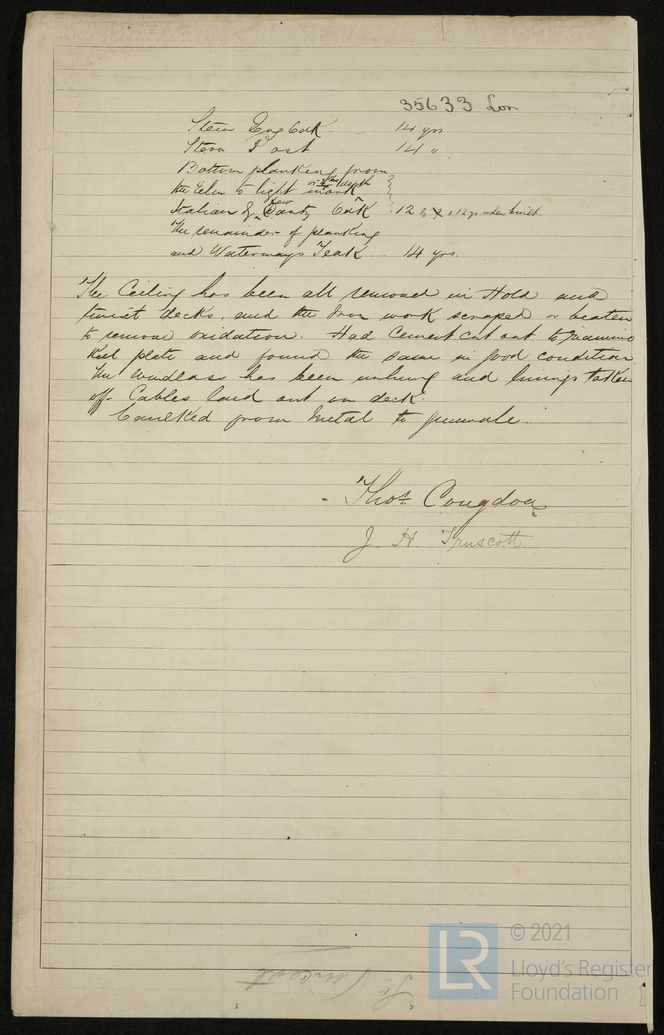 35633 Lon
Stem Eng Oak 14 yrs
Stern Post 14 "
Bottom planking from
the Elm to light mark
Italian & Dantz Oak 12 & 12 yrs when built.
The remainder of planking
and Waterways Teak 14 yrs.
The Ceiling has been all removed in Hold and
twixt decks, and the Iron work scraped or beaten
to remove oxidation. Had Cement cut out to Examine
Keel plate and found the same in good condition.
The Windlass has been unhung and linings taken
off. Cables laid out on deck.
Caulked from Metal to gunwale.
Thos. Congdon
J H Truscott
St Vincent
LR © 2021
Lloyd's Register
Foundation